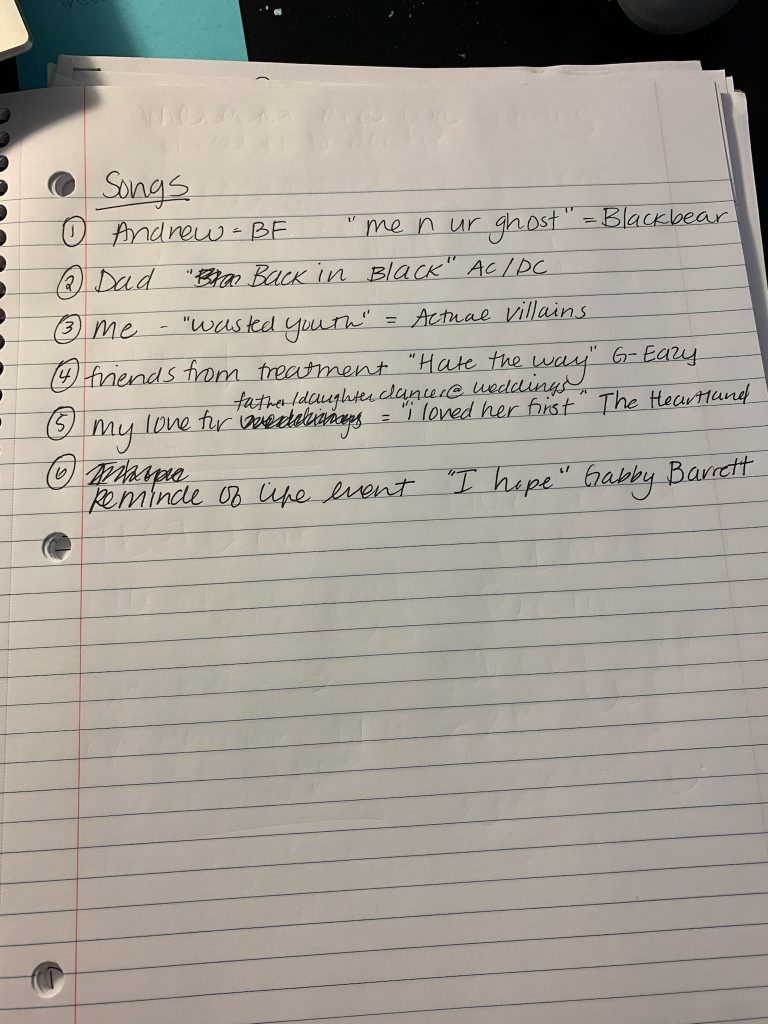 Songs
① Andrew = BF "me n ur ghost" = Blackbear
② Dad "Back in Black" AC/DC
③ me - "wasted youth" = Actual villains
④ friends from treatment "Hate the way" G-Eazy
father/daughter dances @ weddings
⑤ my love for = "i loved her first" The Heartland
⑥
Reminde of life event "I hope" Gabby Barrett